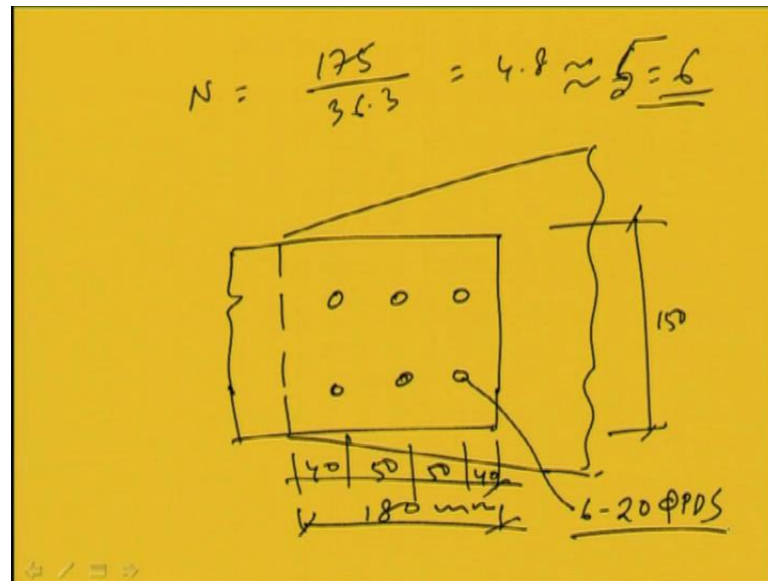 N = 175 / 36.3 = 4.8 ≈ 5 = 6
150
40 50 50 40
180 mm
6-20 ΦPDS